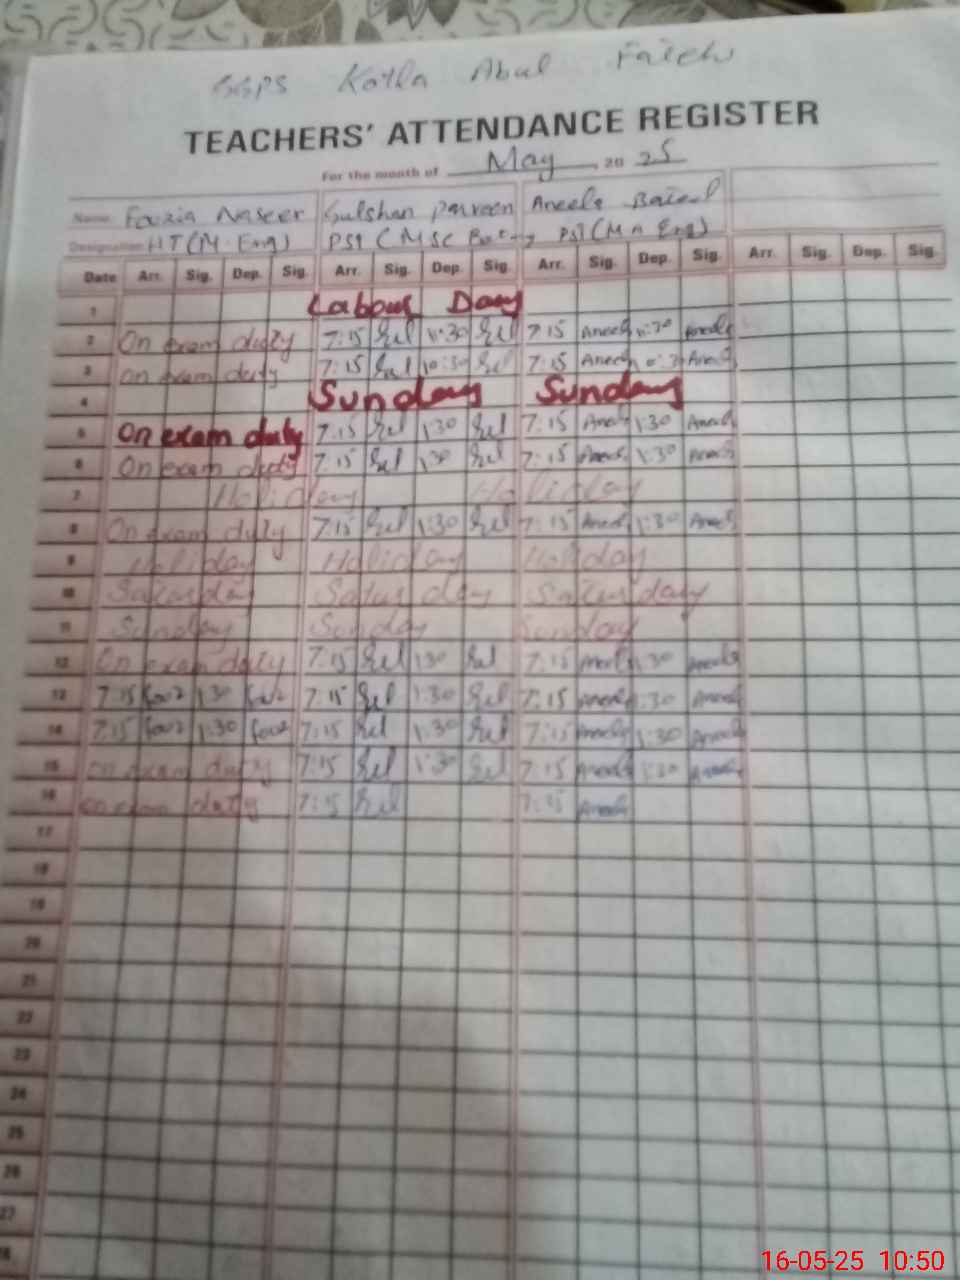 GGPS Kotla Abul Fateh
TEACHERS' ATTENDANCE REGISTER
For the month of May 2025
Name Fouzia Naseer Gulshan Parveen Aneela
Designation HT (M. Eng) PST (MSC Botany PST (M A Eng)
Date Arr. Sig. Dep. Sig. Arr. Sig. Dep. Sig. Arr. Sig. Dep. Sig. Arr. Sig. Dep. Sig.
1 Labour Day
2 On exam duty 7:15 Gul 11:30 Gul 7:15 Aneela 11:30 Aneela
3 on exam duty 7:15 Gul 10:30 Gul 7:15 Aneela Aneela
4 Sunday Sunday
5 On exam duty 7:15 Gul 1:30 Gul 7:15 Aneela 1:30 Aneela
6 On exam duty 7:15 Gul 1:30 Gul 7:15 Aneela 1:30 Aneela
7 Holiday Holiday
8 On exam duty 7:15 Gul 1:30 Gul 7:15 Aneela 1:30 Aneela
9 Holiday Holiday Holiday
10 Saturday Saturday Saturday
11 Sunday Sunday Sunday
12 On exam duty 7:15 Gul 1:30 Gul 7:15 Aneela 1:30 Aneela
13 7:15 1:30 7:15 Gul 1:30 Gul 7:15 Aneela 1:30 Aneela
14 7:15 1:30 7:15 Gul 1:30 Gul 7:15 Aneela 1:30 Aneela
15 on exam duty 7:15 Gul 1:30 Gul 7:15 Aneela 1:30 Aneela
16 on exam duty 7:15 Gul 7:15 Aneela
17
18
19
20
21
22
23
24
25
26
27
28
16-05-25 10:50